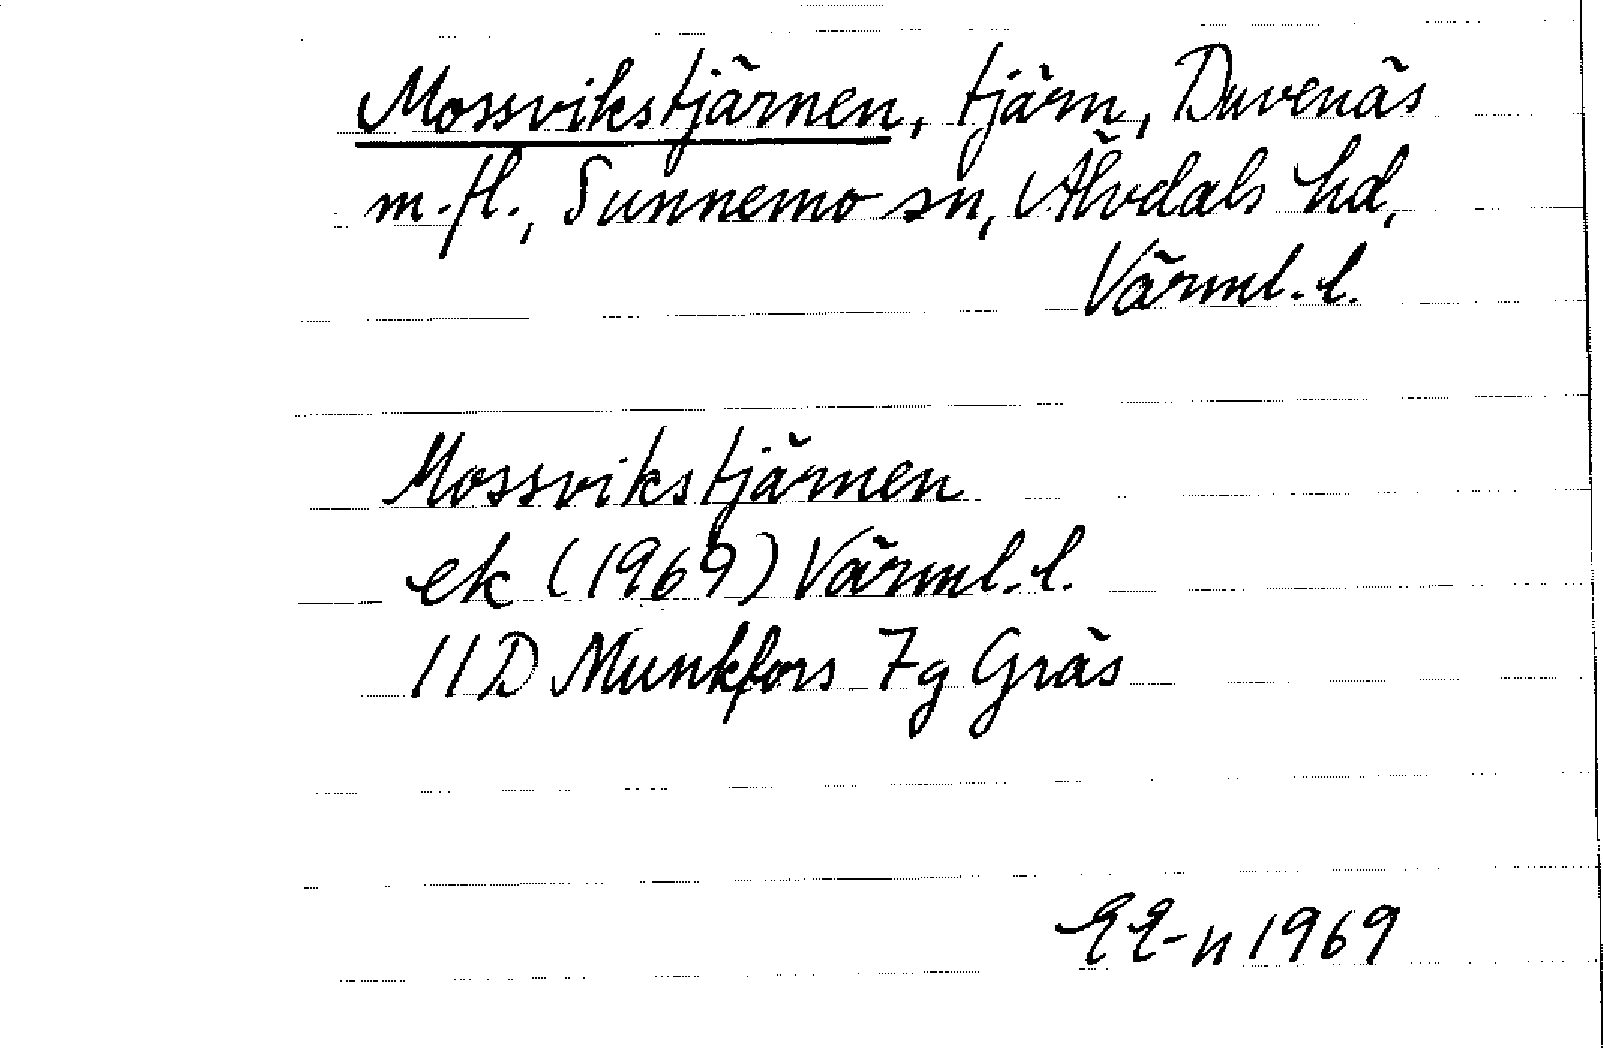 Mossvikstjärnen, tjärn, Duvenäs
m.fl., Sunnemo sn, Älvdals hd,
Värml. l.
Mossvikstjärnen
ek (1969) Värml. l.
11D Munkfors 7g Gräs
EE-n 1969